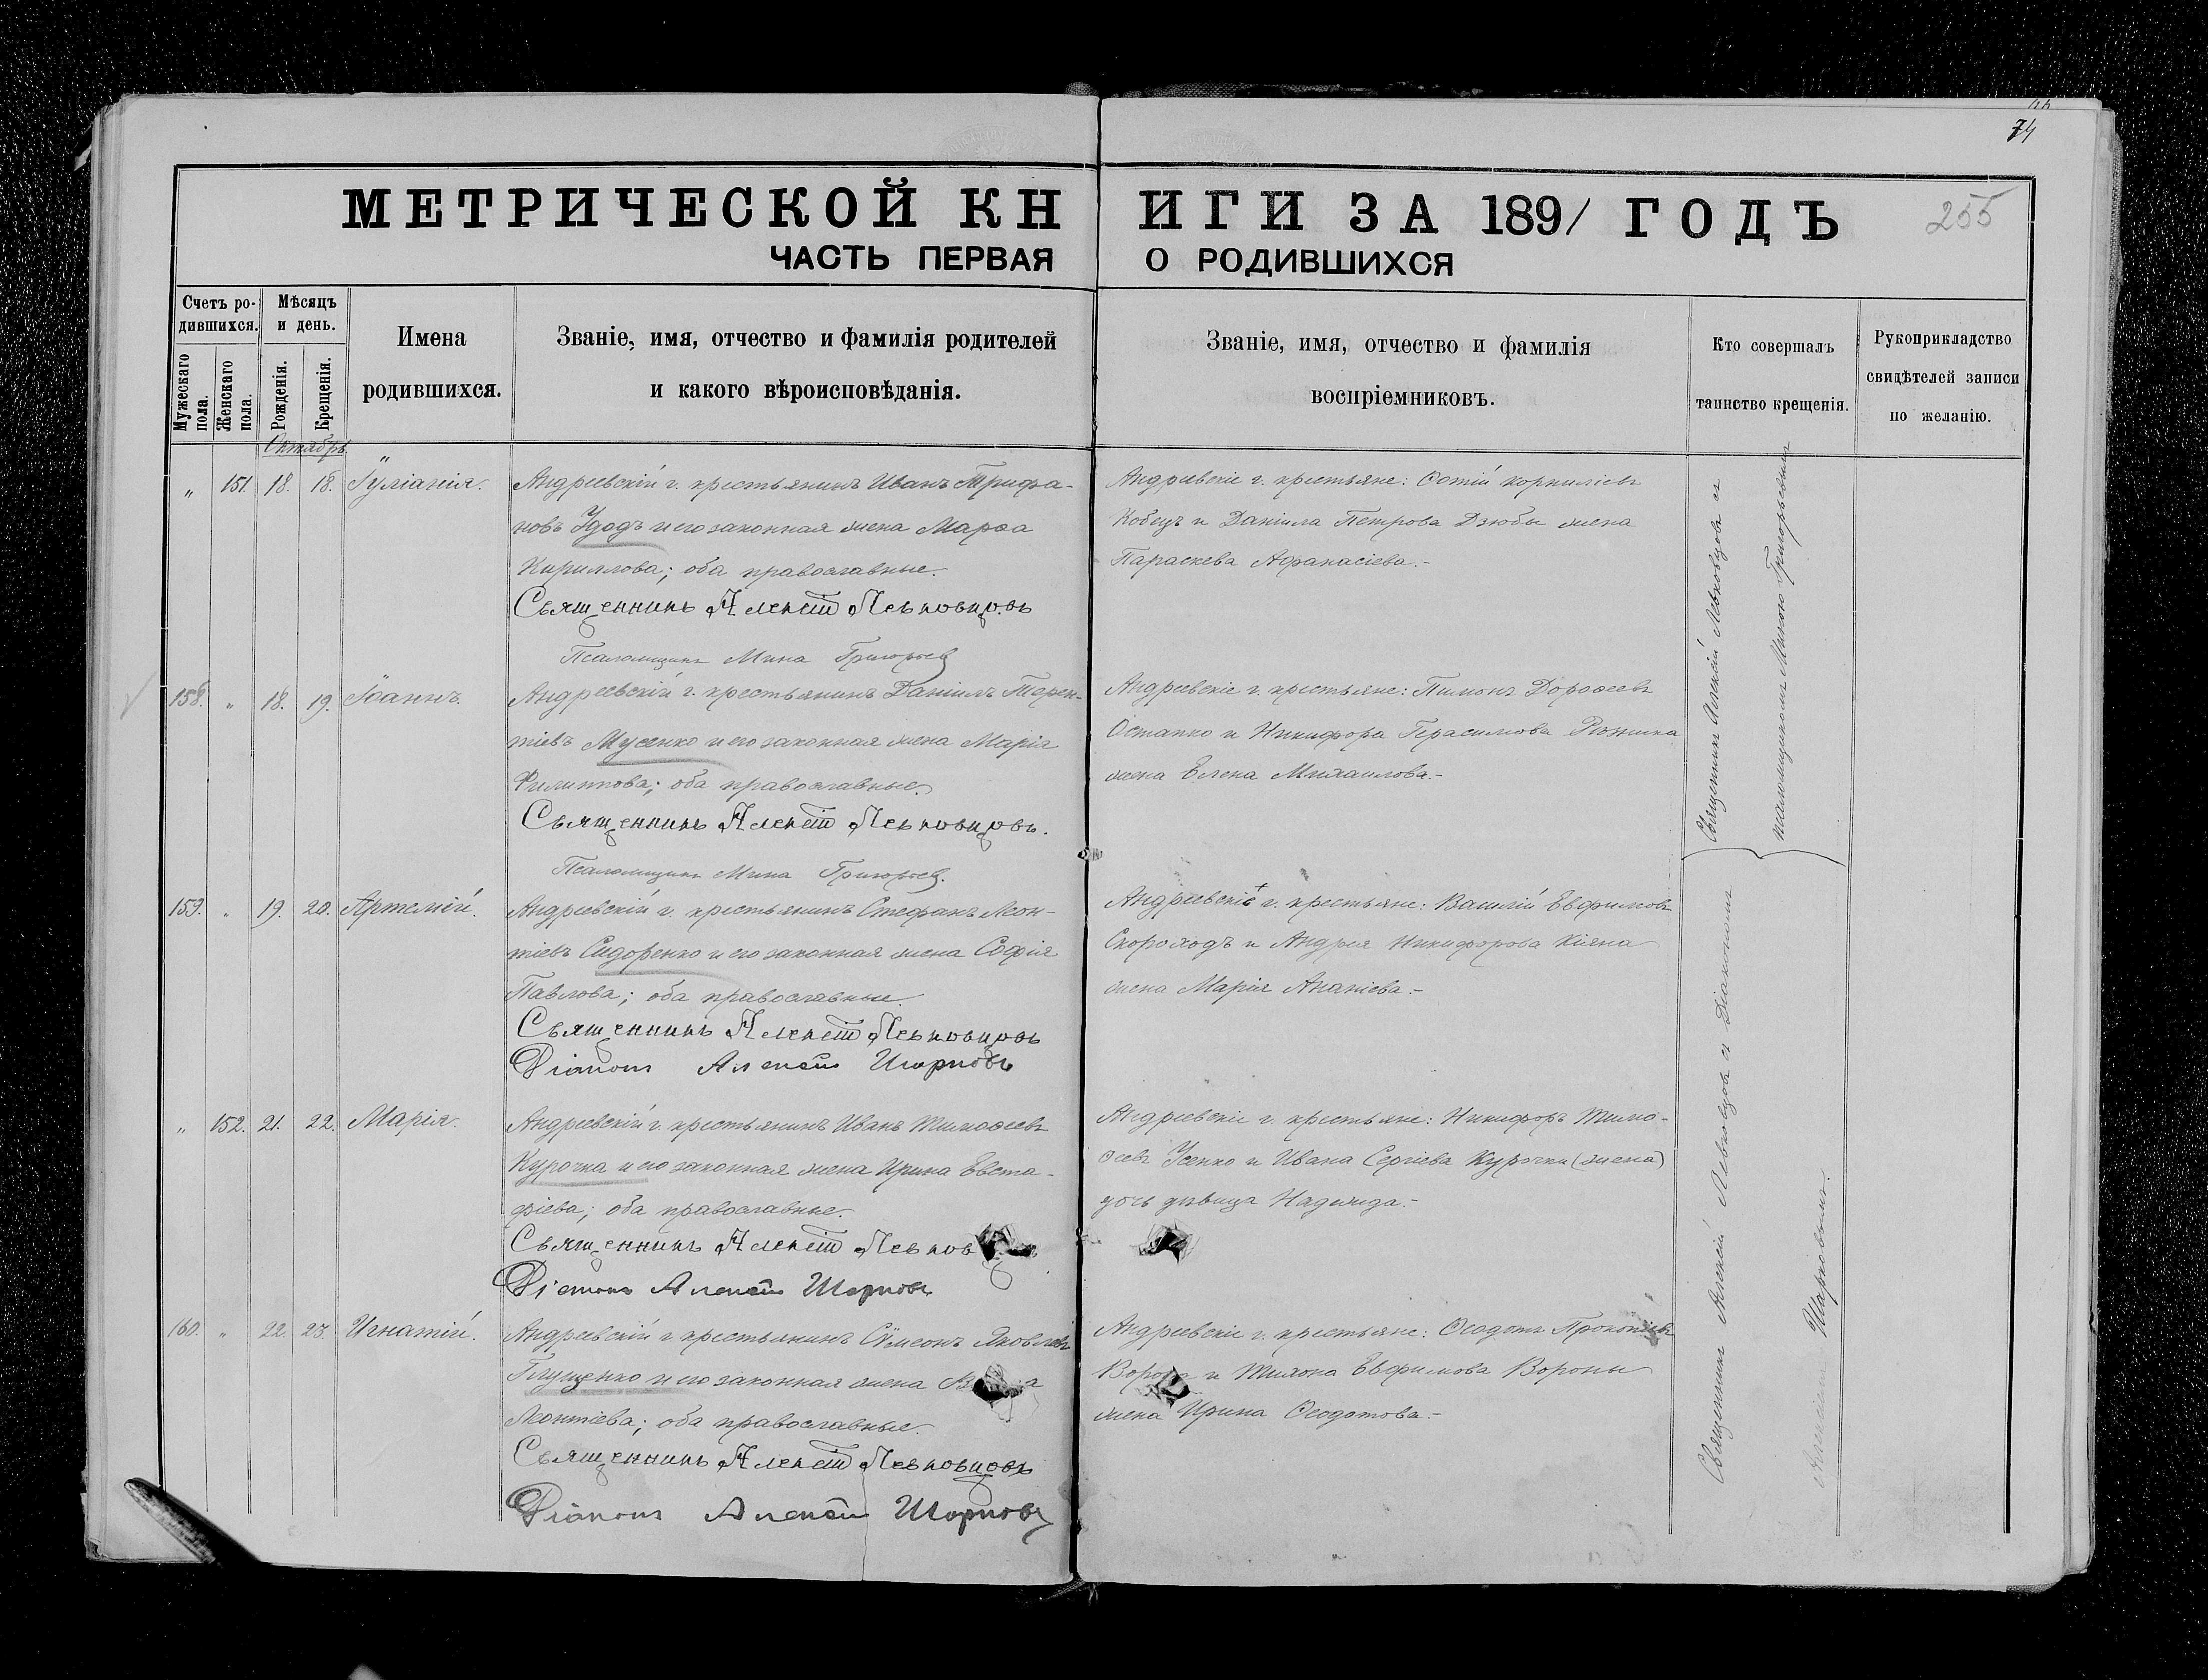 74
МЕТРИЧЕСКОЙ КНИГИ ЗА 1891 ГОДЪ
255
ЧАСТЬ ПЕРВАЯ О РОДИВШИХСЯ
Счетъ родившихся.
Мужескаго пола.
Женскаго пола.
Мѣсяцъ и день.
Рожденія.
Крещенія.
Имена родившихся.
Званіе, имя, отчество и фамилія родителей
и какого вѣроисповѣданія.
Званіе, имя, отчество и фамилія
воспріемниковъ.
Кто совершалъ
таинство крещенія.
Рукоприкладство
свидѣтелей записи
по желанію.
Октябрь
„ 151. 18. 18. Іуліанія.
Андреевскій г. крестьянинъ Иванъ Трифо-
новъ Удодъ и его законная жена Марѳа
Кириллова; оба православные.
Священникъ Алексій Левковцовъ
Псаломщикъ Мина Григорьев
Андреевскіе г. крестьяне: Фотій Корниліевъ
Кобецъ и Даніила Петрова Дзюбы жена
Параскева Афанасіева.-
158. „ 18. 19. Іоаннъ.
Андреевскій г. крестьянинъ Даніилъ Терен-
тіевъ Мусенко и его законная жена Марія
Филиппова; оба православные.
Священникъ Алексій Левковцовъ.
Псаломщикъ Мина Григорьев.
Андреевскіе г. крестьяне: Пимонъ Дороѳеевъ
Остапко и Никифора Герасимова
жена Елена Михаилова.-
159. „ 19. 20. Артемій.
Андреевскій г. крестьянинъ Стефанъ Леон-
тіевъ Сидоренко и его законная жена Софія
Павлова; оба православные.
Священникъ Алексій Левковцовъ
Діаконъ Алексій Шарковъ
Андреевскіе г. крестьяне: Василій Евфимовъ
Скороходъ и Андрея Никифорова Кіяна
жена Марія Ананіева.-
„ 152. 21. 22. Марія.
Андреевскій г. крестьянинъ Иванъ Тимоѳеевъ
Курочка и его законная жена Ирина Евста-
фіева; оба православные.
Священникъ Алексій Левков
Діаконъ Алексій Шарковъ
Андреевскіе г. крестьяне: Никифоръ Тимо-
ѳеевъ Усенко и Ивана Сергіева Курочки (жена)
дочь дѣвица Надежда.-
160. „ 22. 23. Игнатій.
Андреевскій г. крестьянинъ Сѵмеонъ Яковлевъ
Глущенко и его законная жена
Леонтіева; оба православные.
Священникъ Алексій Левковцовъ
Діаконъ Алексій Шарковъ
Андреевскіе г. крестьяне: Ѳеодотъ Прокопіевъ
и Тихона Евфимова Вороны
жена Ирина Ѳеодотова.-
Священникъ Алексій Левковцовъ съ
псаломщикомъ Миною Григорьевымъ
Священникъ Алексій Левковцовъ съ Діакономъ
Алексіемъ Шарковымъ.